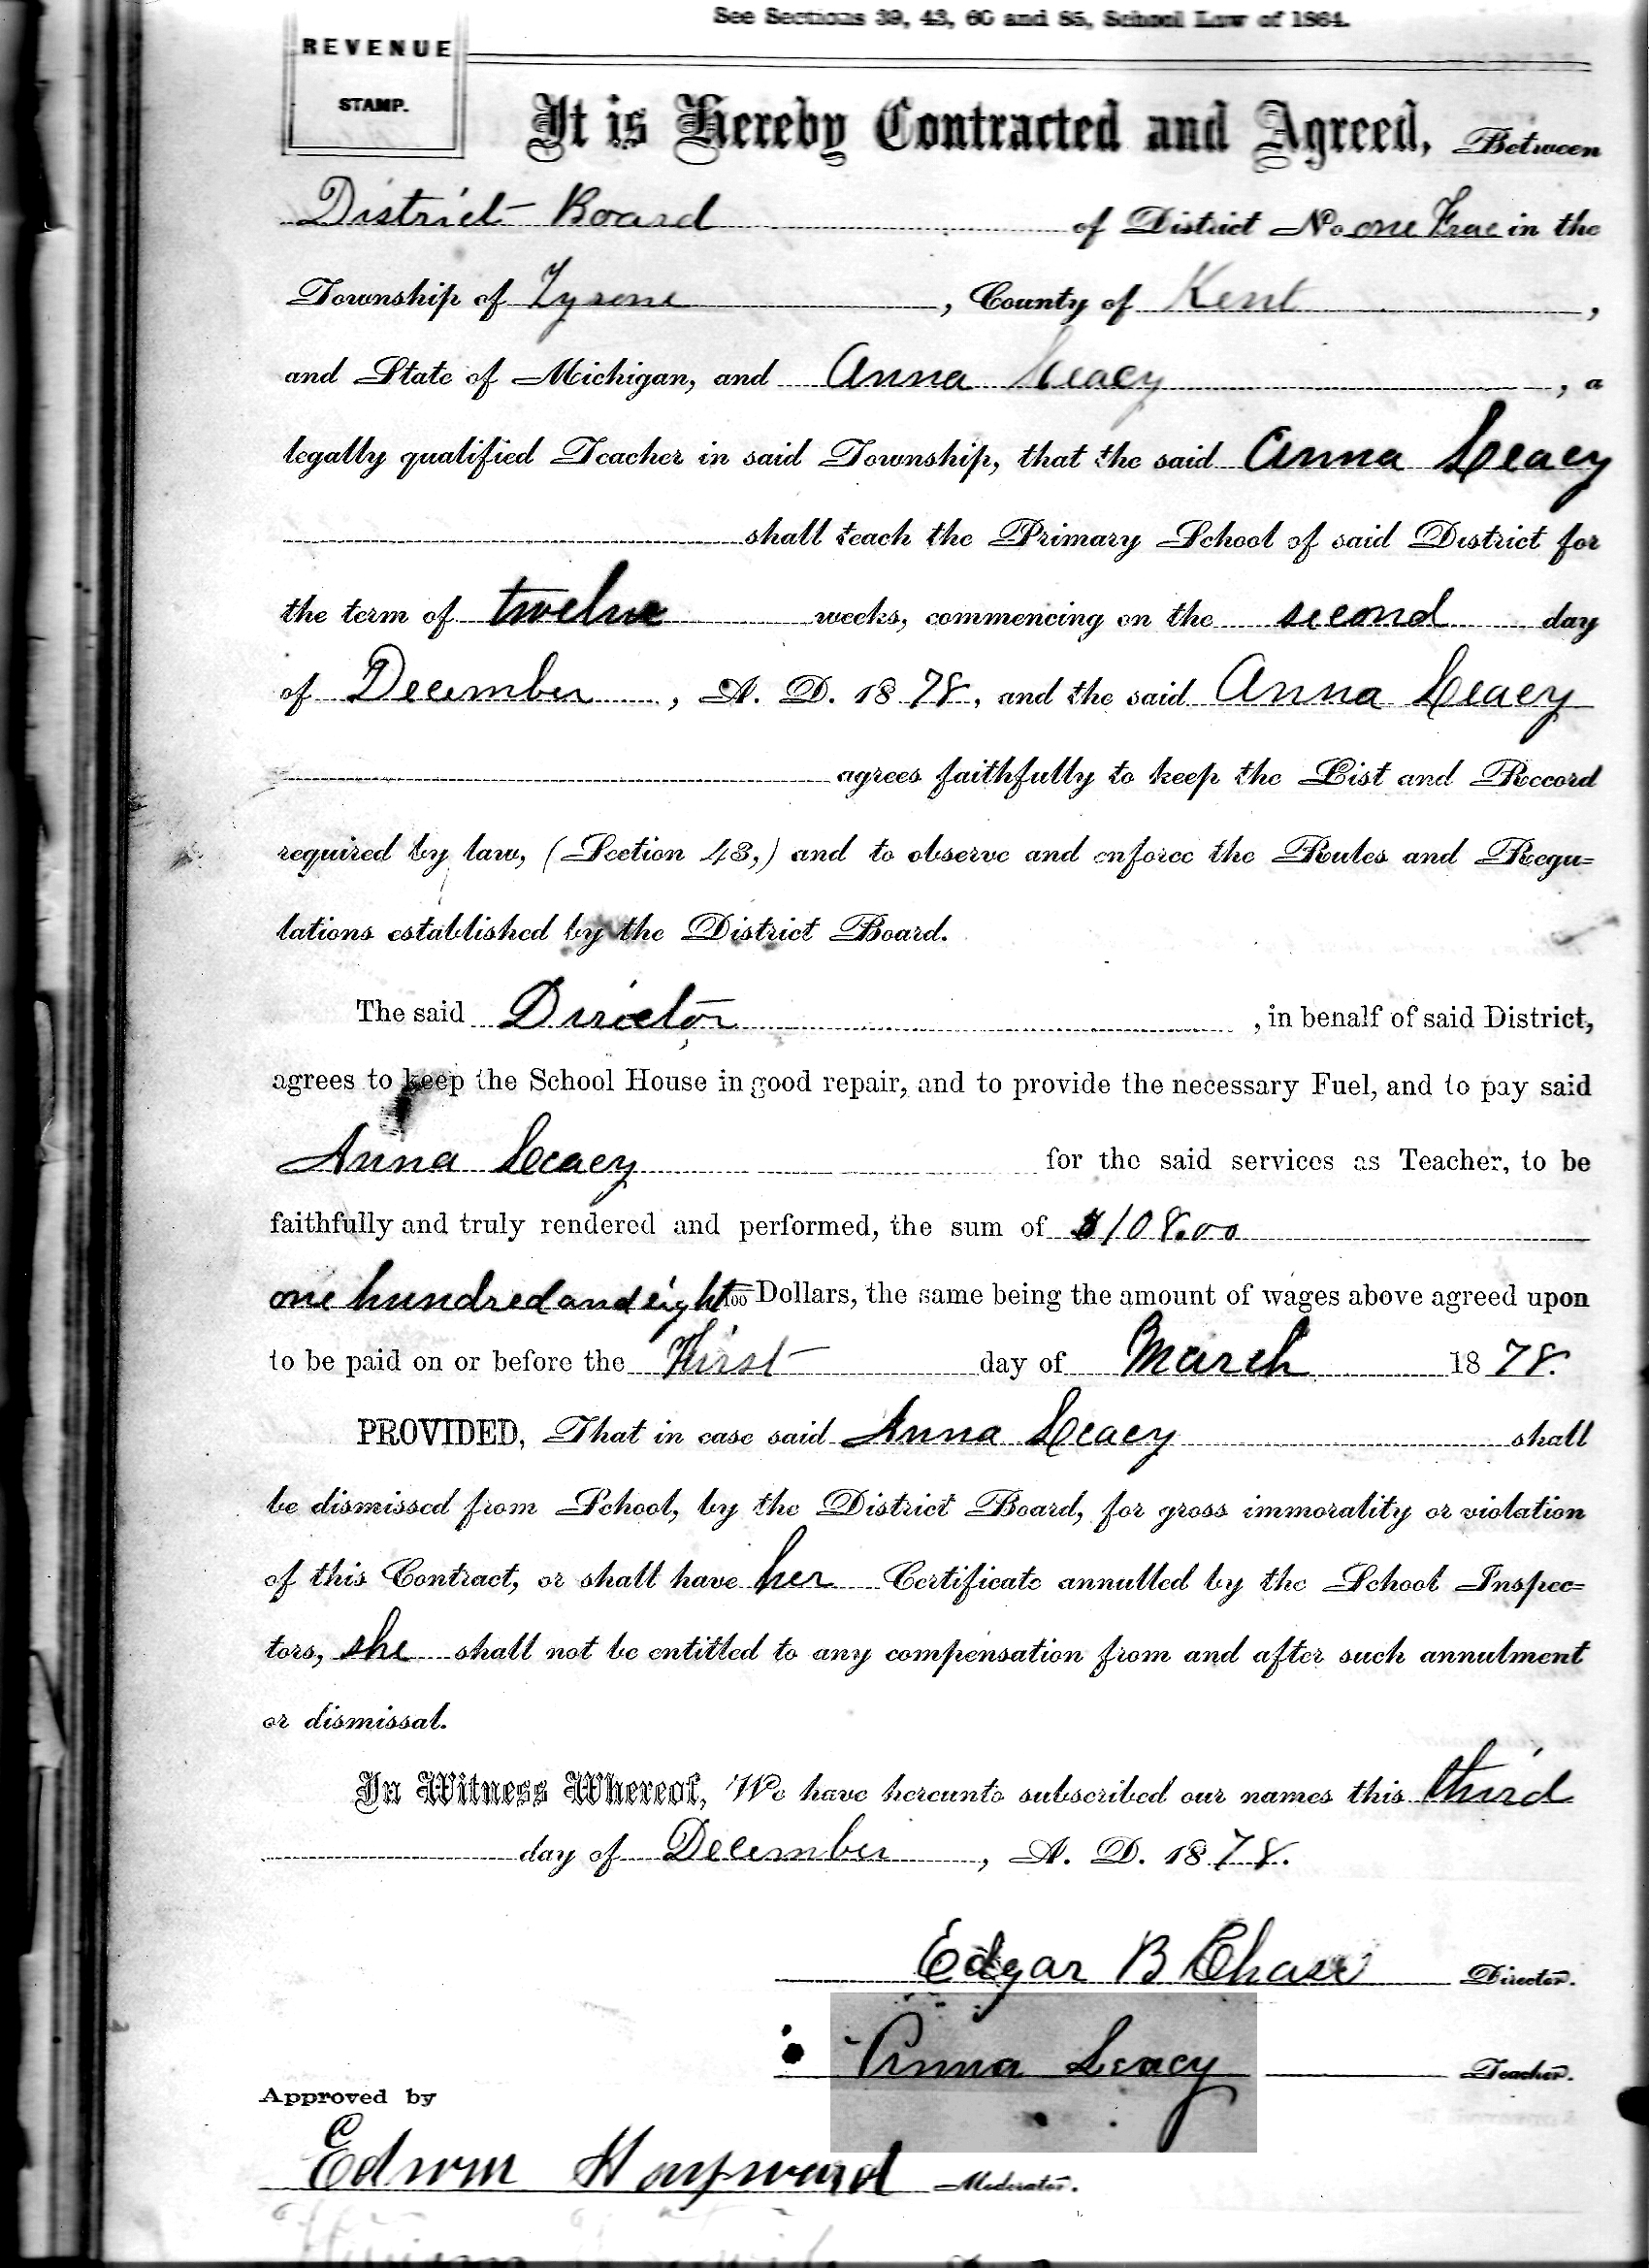 See Sections 39, 43, 60 and 85, School Law of 1864.
REVENUE
STAMP.
It is Hereby Contracted and Agreed, Between
District Board of District No one Frac in the
Township of Tyrone, County of Kent,
and State of Michigan, and Anna Leacy, a
legally qualified Teacher in said Township, that the said Anna Leacy
shall teach the Primary School of said District for
the term of twelve weeks, commencing on the second day
of December, A. D. 1878, and the said Anna Leacy
agrees faithfully to keep the List and Record
required by law, (Section 43,) and to observe and enforce the Rules and Regu=
lations established by the District Board.
The said Director, in behalf of said District,
agrees to keep the School House in good repair, and to provide the necessary Fuel, and to pay said
Anna Leacy for the said services as Teacher, to be
faithfully and truly rendered and performed, the sum of $108.00
one hundred and eight 100 Dollars, the same being the amount of wages above agreed upon
to be paid on or before the First day of March 1878.
PROVIDED, That in case said Anna Leacy shall
be dismissed from School, by the District Board, for gross immorality or violation
of this Contract, or shall have her Certificate annulled by the School Inspec=
tors, she shall not be entitled to any compensation from and after such annulment
or dismissal.
In Witness Whereof, We have hereunto subscribed our names this third
day of December, A. D. 1878.
Edgar B Chase Director.
Anna Leacy Teacher.
Approved by
Edwin Hayward Moderator.